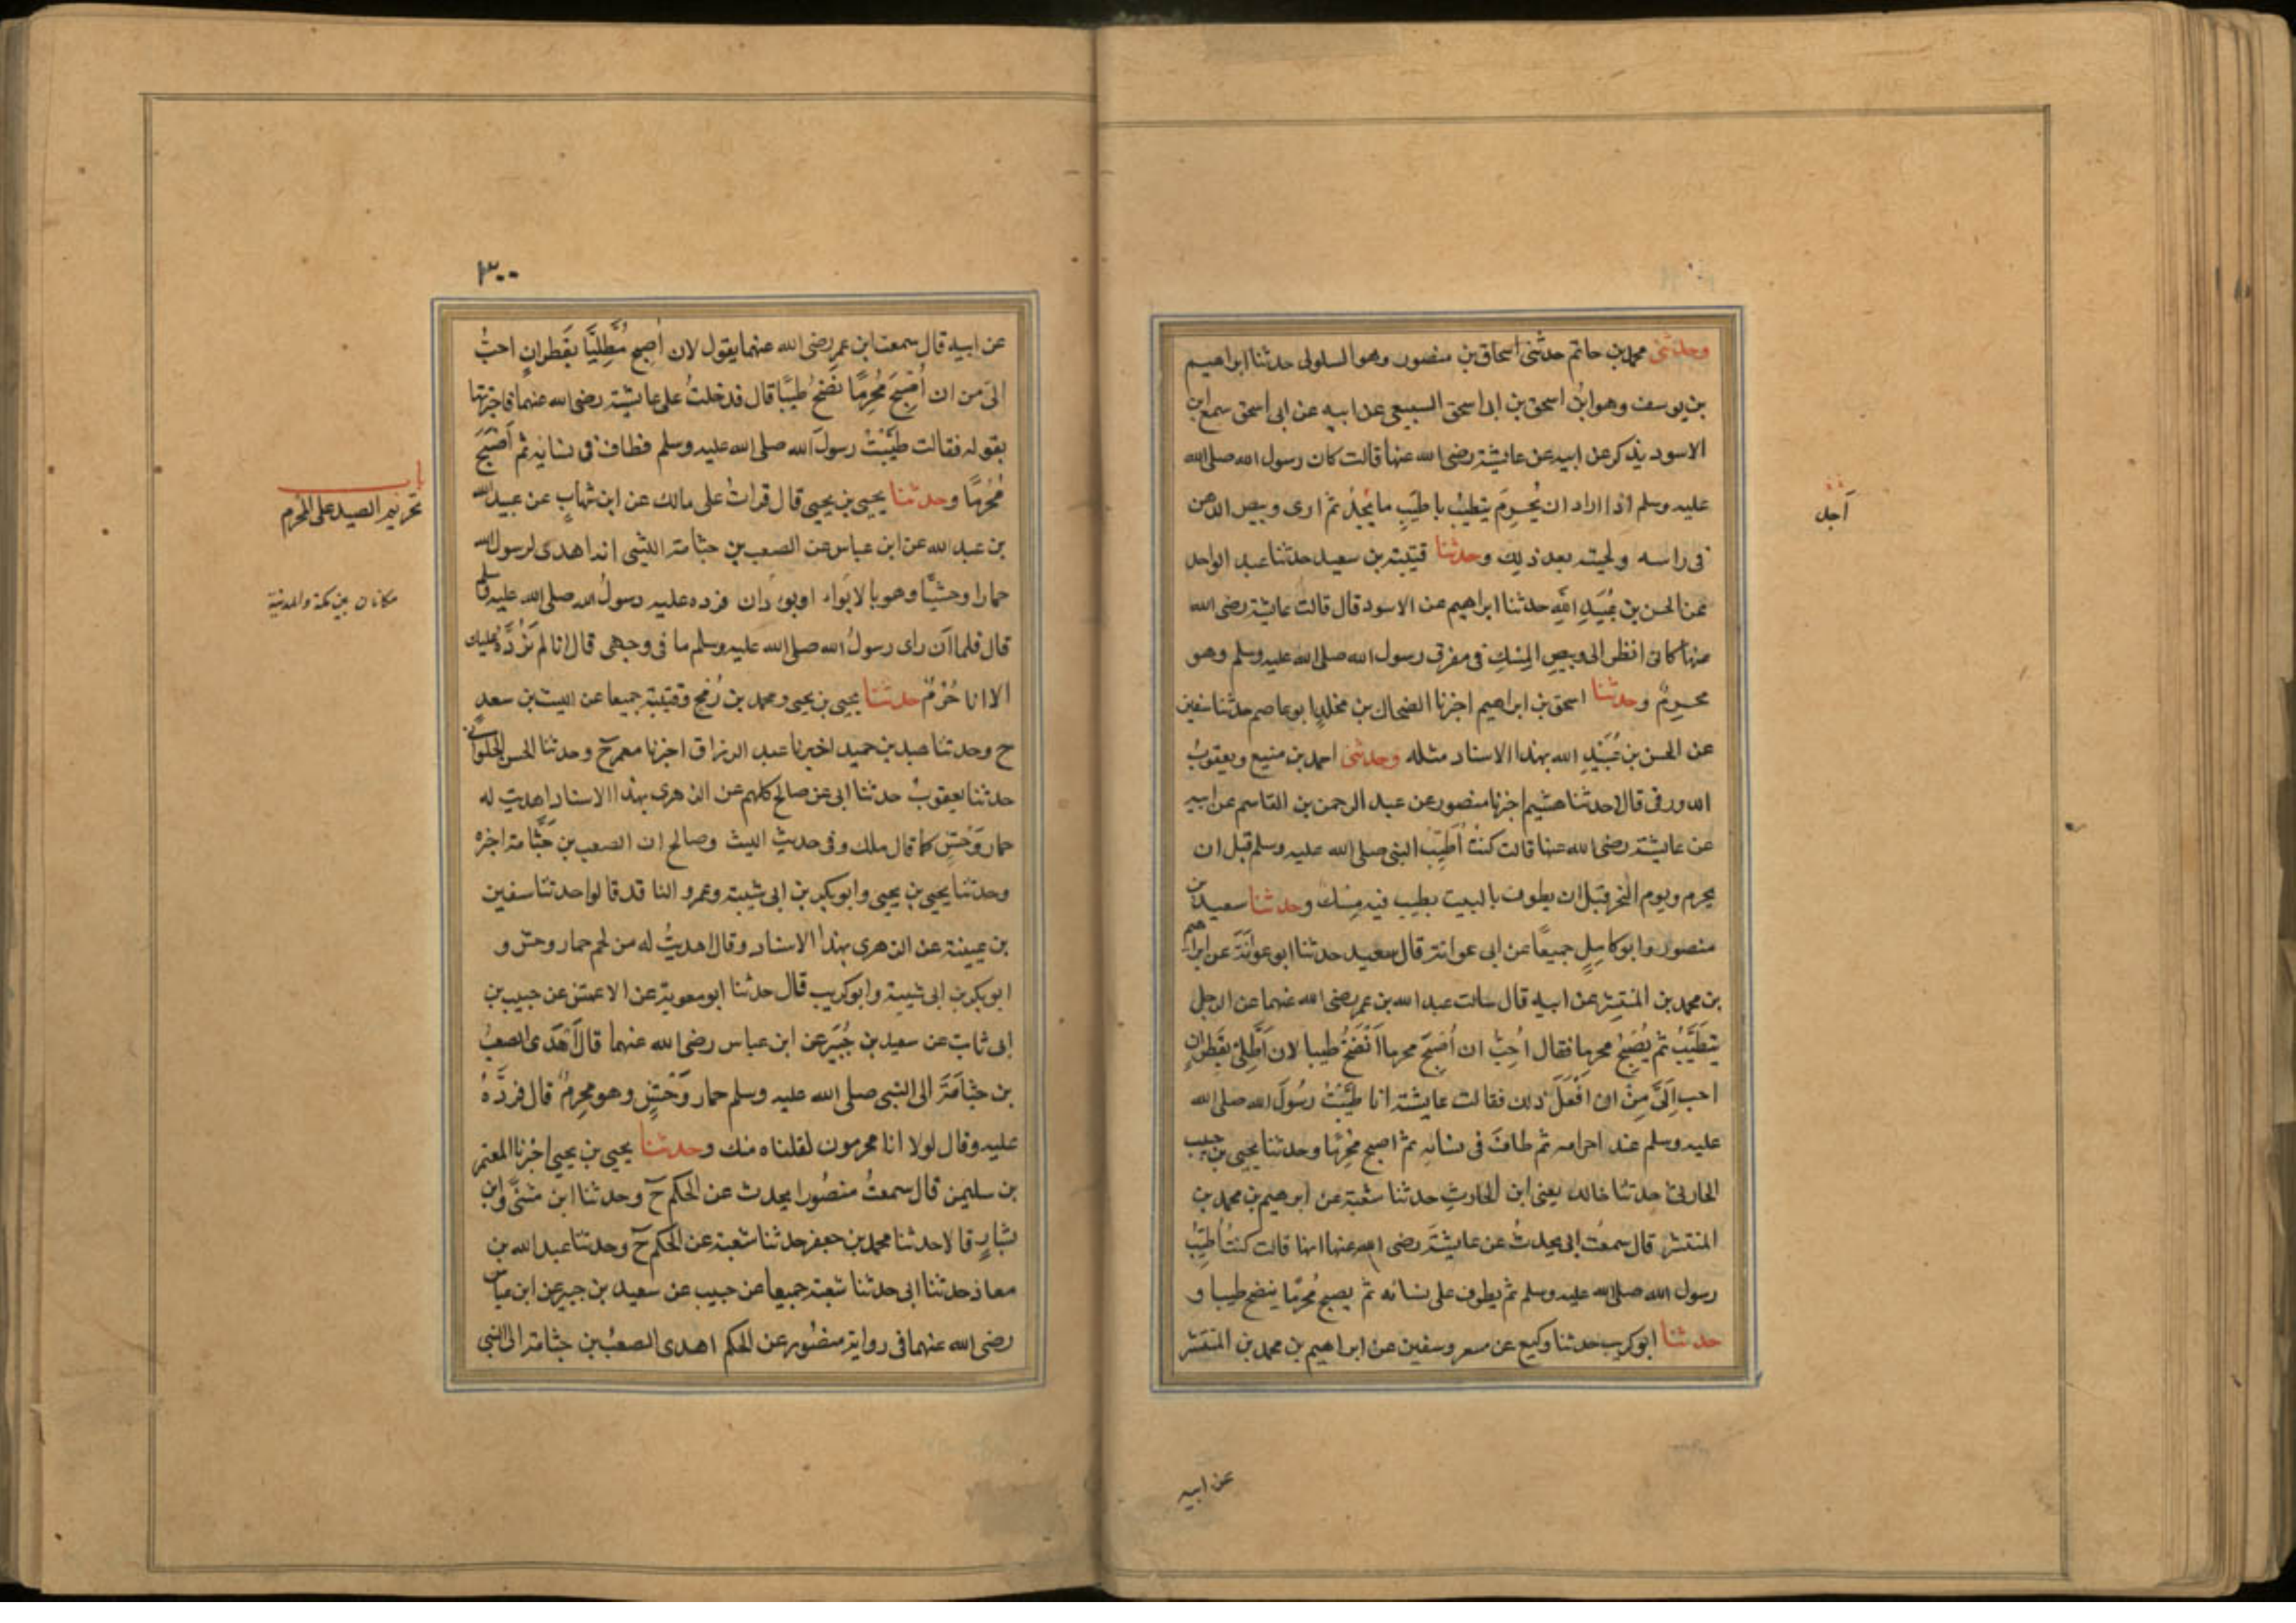 وحدثنى محمد بن حاتم حدثنى اسحاق بن منصور وهو السلولى حدثنا ابراهيم
بن يوسف وهو ابن اسحق بن ابى اسحق السبيعى عن ابيه عن ابى اسحق سمع ابن
الاسود يذكر عن ابيه عن عايشة رضى الله عنها قالت كان رسول الله صلى الله
عليه وسلم اذا اراد ان يُحرِمَ يتطيبُ باطيَبِ ما يَجِدُ ثم ارى وبيص الدهن
فى راسه ولحيته بعد ذلك وحدثنا قتيبة بن سعيد حدثنا عبد الواحد
عن الحسن بن عُبَيدِ اللهِ حدثنا ابراهيم عن الاسود قال قالت عايشة رضى الله
عنها كانى انظر الى وبيصِ المِسْكِ فى مفرق رسول الله صلى الله عليه وسلم وهو
محرمٌ وحدثنا اسحق بن ابراهيم اخبرنا الضحاك بن مخلد ابو عاصم حدثنا سفين
عن الحسن بن عُبَيْدِ الله بهذا الاسناد مثله وحدثنى احمد بن منيع ويعقوبُ
الدورقى قالا حدثنا هشيم اخبرنا منصور عن عبد الرحمن بن القاسم عن ابيه
عن عايشة رضى الله عنها قالت كنتُ اُطَيِّبُ النبى صلى الله عليه وسلم قبل ان
يحرم ويوم النحر قبل ان يطوف بالبيت بطيب فيه مِسْكٌ وحدثنا سعيد بن
منصور وابو كامِلٍ جميعًا عن ابى عوانة قال سعيد حدثنا ابو عوانَةَ عن ابراهيم
بن محمد بن المنتشر عن ابيه قال سالت عبد الله بن عمر رضى الله عنهما عن الرجل
يَتَطَيَّبُ ثم يُصْبِحُ محرِما فقال ما اُحِبُّ ان اُصْبِحَ محرما اَنْضَخُ طيبا لان اَطَّلِىَ بقَطِرانٍ
احب اِلَىَّ مِنْ ان اَفْعَلَ ذلك فقالت عايشة انا طَيَّبْتُ رسُولَ الله صلى الله
عليه وسلم عند احرامه ثم طافَ فى نسايه ثم اصبح مُحْرِمًا وحدثنا يحيى بن حبيب
الحارثى حدثنا خالد يعنى ابن الحارث حدثنا شعبة عن ابرهيم بن محمد بن
المنتشر قال سمعتُ ابى يحدثُ عن عايشَةَ رضى الله عنها انها قالت كنتُ اُطَيِّبُ
رسول الله صلى الله عليه وسلم ثم يطوف على نسائه ثم يصبح مُحرِمًا ينضخ طيبا و
حدثنا ابو كريب حدثنا وكيع عن مسعر وسفين عن ابراهيم بن محمد بن المنتشر
آجل
عن ابيه
٣٠٠
عن ابيه قال سمعت ابن عمر رضى الله عنهما يقول لان اُصبِح مُطَّلِيًّا بقَطِرانٍ احبُّ
الىّ من ان اُصْبِحَ مُحْرِمًا نَضَخُ طيبًا قال فدخلتُ على عايشة رضى الله عنهما فاخبرتها
بقوله فقالت طيّبْتُ رسولَ الله صلى الله عليه وسلم فطاف فى نسايه ثم اَصْبَحَ
مُحْرِمًا وحدثنا يحيى بن يحيى قال قراتُ على مالك عن ابن شهابٍ عن عبيد الله
بن عبد الله عن ابن عباس عن الصعب بن جثامة الليثى انه اهدى لرسول الله
حمارا وحشيًّا وهو بالابَواء او بودان فرده عليه رسولُ الله صلى الله عليه وسلم
قال فلما ان راى رسولُ الله صلى الله عليه وسلم ما فى وجهى قال انا لم نَرُدَّهُ عليك
الا انا حُرُمٌ حدثنا يحيى بن يحيى ومحمد بن رُمْح وقتيبة جميعا عن الليث بن سعدٍ
ح وحدثنا عبد بن حميد اخبرنا عبد الرزاق اخبرنا معمر ح وحدثنا الحسن الحلوانى
حدثنا يعقوبُ حدثنا ابى عن صالح كلهم عن الزهرى بهذا الاسناد اهديت له
حمار وَحْشٍ كما قال ملك وفى حديث الليث وصالح ان الصعب بن جَثّامة اخبره
وحدثنا يحيى بن يحيى وابو بكر بن ابى شيبة وعمرو الناقد قالوا حدثنا سفين
بن عيينة عن الزهرى بهذا الاسناد وقال اهديتُ له من لحم حمار وحش و
ابو بكر بن ابى شيبة وابو كريب قال حدثنا ابو معوية عن الاعمش عن حبيب بن
ابى ثابت عن سعيد بن جُبَيَر عن ابن عباس رضى الله عنهما قال اَهْدَى الصعبُ
بن جثامَةَ الى النبى صلى الله عليه وسلم حمار وَحْشٍ وهو محرِمٌ قال فردَّهُ
عليه وقال لولا انا محرمون لقبلناه منك وحدثنا يحيى بن يحيى اخبرنا المعتمر
بن سليمن قال سمعتُ منصُورا يحدث عن الحكم ح وحدثنا ابن مثنّى وابن
بشارٍ قالا حدثنا محمد بن جعفر حدثنا شعبة عن الحكم ح وحدثنا عبيد الله بن
معاذ حدثنا ابى حدثنا شعبة جميعا عن حبيب عن سعيد بن جبير عن ابن عباس
رضى الله عنهما فى رواية منصُور عن الحكم اهدى الصعبُ بن جثامة الى النبى
باب
تحريم الصيد على المحرم
مكانان بين مكة والمدينة